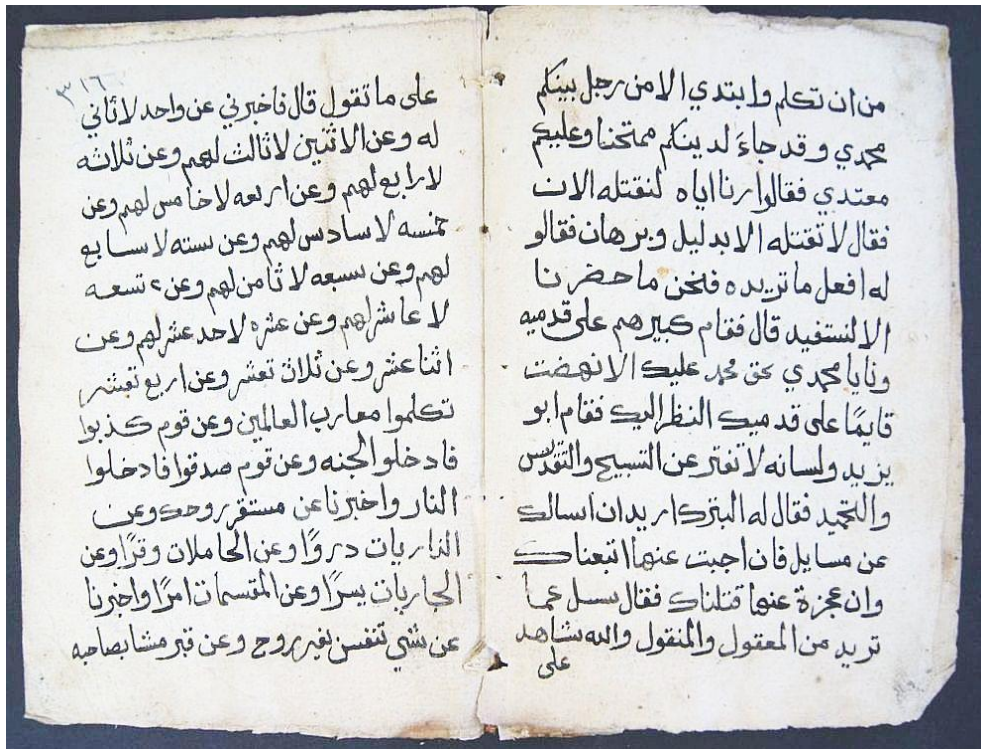 من ان تكلم وابتدي الا من رجل بينكم
محمدي وقد جاءَ لدينكم ممتحنا وعليكم
معتدي فقالوا ارنا اياه لنقتله الان
فقال لا تقتله الا بدليل وبرهان فقالو
له افعل ما تريده فنحن ما حضرنا
الا لنستفيد قال فقام كبيرهم على قدميه
ونايا محمدي بحق محمد عليك الا نهضت
قايمًا على قدميك النظر اليك فقام ابو
يزيد ولسانه لا تفتر عن التسبيح والتقديس
والتحميد فقال له البترك اريد ان اسالك
عن مسايل فان اجبت عنها اتبعناك
وان عجزة عنها قتلناك فقال سل عما
تريد من المعقول والمنقول والله شاهد
على
٣١٦
على ما تقول قال فاخبرني عن واحد لا ثاني
له وعن الاثنين لا ثالث لهم وعن ثلاثه
لا رابع لهم وعن اربعه لا خامس لهم وعن
خمسه لا سادس لهم وعن سته لا سابع
لهم وعن سبعه لا ثامن لهم وعن تسعه
لا عاشر لهم وعن عشره لا حد عشر لهم وعن
اثنا عشر وعن ثلاث تعشر وعن اربع تعشر
تكلموا مع رب العالمين وعن قوم كذبوا
فادخلو الجنه وعن قوم صدقوا فادخلوا
النار واخبرنا عن مستقر روحك وعن
الذاريات دروًا وعن الحاملات وقرًا وعن
الجاريات يسرًا وعن المقسمات امرًا واخبرنا
عن شي تنفس بغير روح وعن قبر مشا بصاحبه